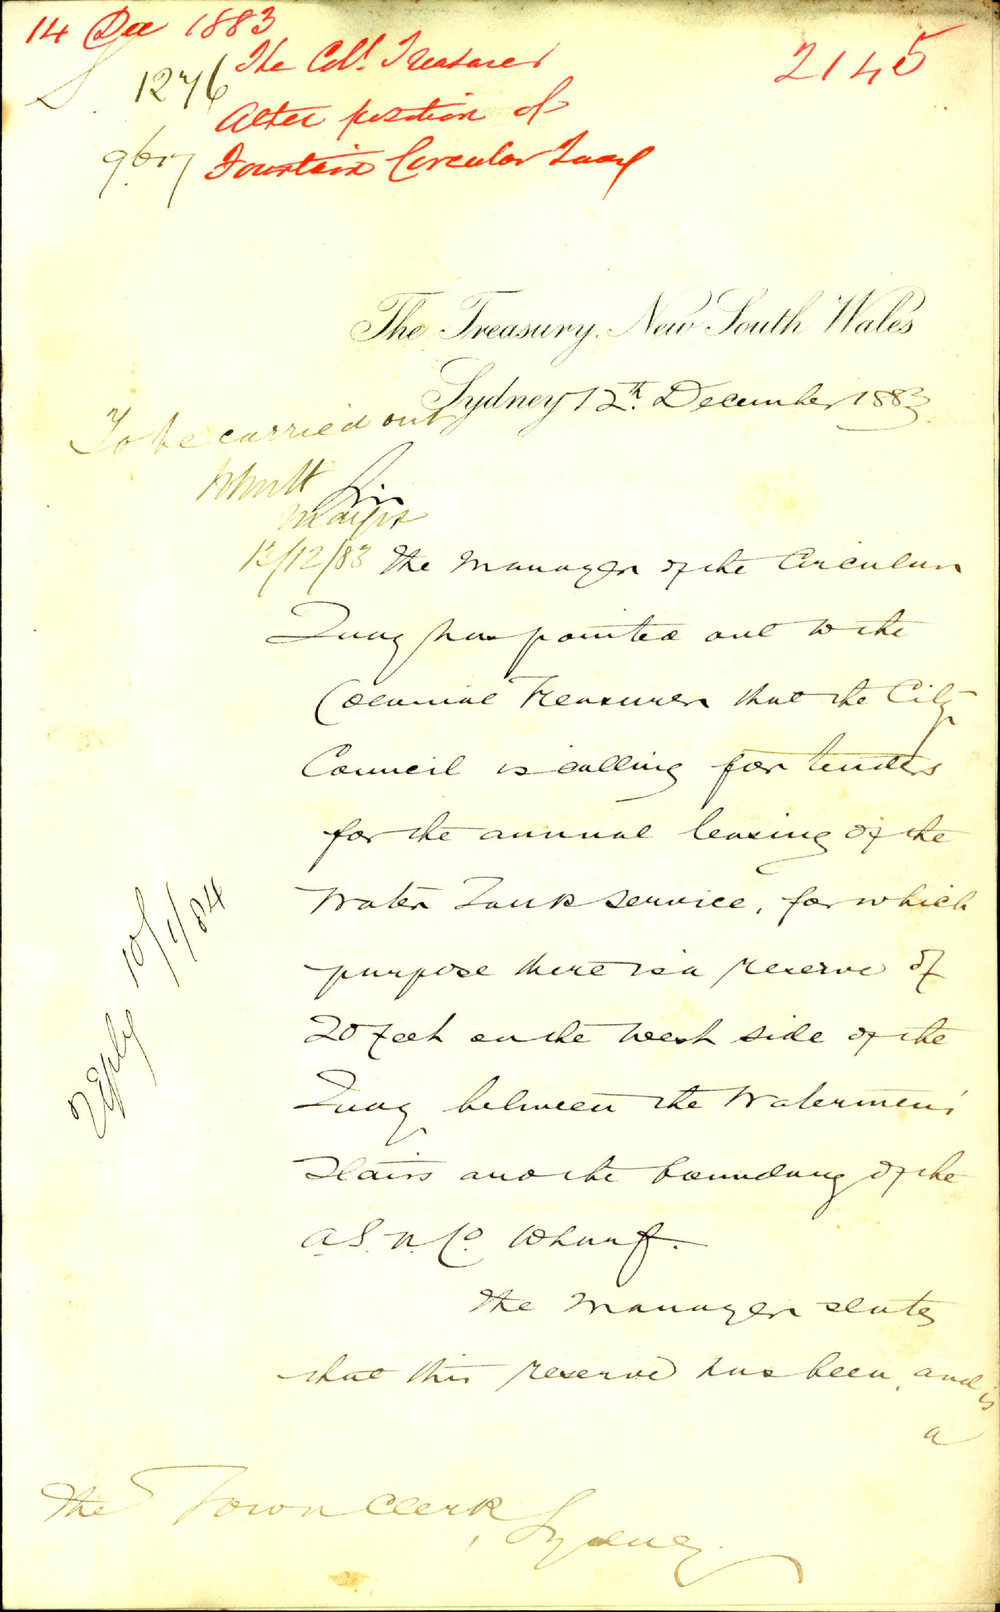 14 Dec 1883
2145
The Coll. Treasurer
1276
Alter position of
Fountain Circular Quay
The Treasury, New South Wales
Sydney 12th. December 1883
To be carried out
Sir
Mayor
13/12/83
The Manager of the Circular
Quay has pointed out to the
Colonial Treasurer that the City
Council is calling for tenders
for the annual leasing of the
Water Tank service, for which
purpose there is a reserve of
20 feet on the West side of the
Quay between the Watermens'
Stairs and the boundary of the
A.S.N. Co. Wharf.
The Manager states
that this reserve has been, and is
a
Reply 10/1/84
The Town Clerk,
Sydney.